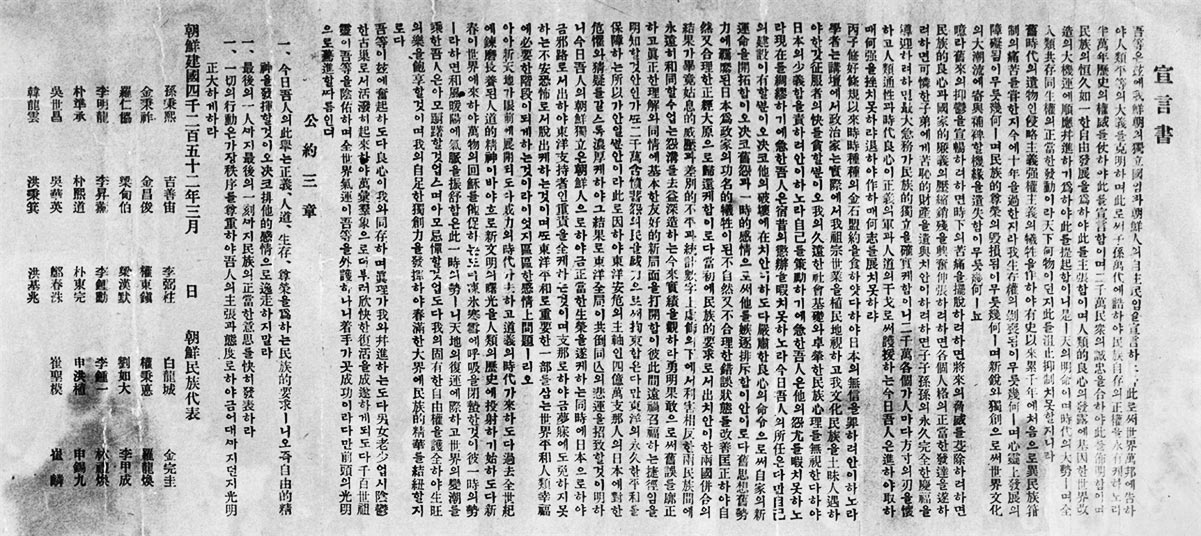 宣言書
吾等은玆에我鮮朝의獨立國임과朝鮮人의自主民임을宣言하노라此로써世界萬邦에告하
야人類平等의大義를克明하며此로써子孫萬代에誥하야民族自存의正權을永有케하노라
半萬年歷史의權威를仗하야此를宣言함이며二千萬民衆의誠忠을合하야此를佈明함이며
民族의恒久如一한自由發展을爲하야此를主張함이며人類的良心의發露에基因한世界改
造의大機運에順應幷進하기爲하야此를提起함이니是ㅣ天의明命이며時代의大勢ㅣ며全
人類共存同生權의正當한發動이라天下何物이던지此를沮止抑制치못할지니라
舊時代의遺物인侵略主義强權主義의犧牲을作하야有史以來累千年에처음으로異民族箝
制의痛苦를嘗한지今에十年을過한지라我生存權의剝喪됨이무릇幾何ㅣ며心靈上發展의
障礙됨이무릇幾何ㅣ며民族的尊榮의毁損됨이무릇幾何ㅣ며新銳와獨創으로써世界文化
의大潮流에寄與補裨할機緣을遺失함이무릇幾何ㅣ뇨
噫라舊來의抑鬱을宣暢하려하면時下의苦痛을擺脫하려하면將來의脅威를芟除하려하면
民族的良心과國家的廉義의壓縮銷殘을興奮伸張하려하면各個人格의正當한發達을遂하
려하면可憐한子弟에게苦恥的財産을遺與치안이하려하면子子孫孫의永久完全한慶福을
導迎하려하면最大急務가民族的獨立을確實케함이니二千萬各個가人마다方寸의刃을懷
하고人類通性과時代良心이正義의軍과人道의干戈로써護援하는今日吾人은進하야取하
매何强을挫치못하랴退하야作하매何志를展치못하랴
丙子修好條規以來時時種種의金石盟約을食하얏다하야日本의無信을罪하려안이하노라
學者는講壇에서政治家는實際에서我祖宗世業을植民地視하고我文化民族을土昧人遇하
야한갓征服者의快를貪할뿐이오我의久遠한社會基礎와卓犖한民族心理를無視한다하야
日本의少義함을責하려안이하노라自己를策勵하기에急한吾人은他의怨尤를暇치못하노
라現在를綢繆하기에急한吾人은宿昔의懲辨을暇치못하노라今日吾人의所任은다만自己
의建設이有할뿐이오決코他의破壞에在치안이하도다嚴肅한良心의命令으로써自家의新
運命을開拓함이오決코舊怨과一時的感情으로써他를嫉逐排斥함이안이로다舊思想舊勢
力에羈縻된日本爲政家의功名的犧牲이된不自然又不合理한錯誤狀態를改善匡正하야自
然又合理한正經大原으로歸還케함이로다當初에民族的要求로서出치안이한兩國倂合의
結果가畢竟姑息的威壓과差別的不平과統計數字上虛飾의下에서利害相反한兩民族間에
永遠히和同할수업는怨溝를去益深造하는今來實績을觀하라勇明果敢으로써舊誤를廓正
하고眞正한理解와同情에基本한友好的新局面을打開함이彼此間遠禍召福하는捷徑임을
明知할것안인가또二千萬含憤蓄怨의民을威力으로써拘束함은다만東洋의永久한平和를
保障하는所以가안일뿐안이라此로因하야東洋安危의主軸인四億萬支那人의日本에對한
危懼와猜疑를갈스록濃厚케하야그結果로東洋全局이共倒同亡의悲運을招致할것이明하
니今日吾人의朝鮮獨立은朝鮮人으로하야금正當한生榮을遂케하는同時에日本으로하야
금邪路로서出하야東洋支持者인重責을全케하는것이며支那로하야금夢寐에도免하지못
하는不安恐怖로서脫出케하는것이며또東洋平和로重要한一部를삼는世界平和人類幸福
에必要한階段이되게하는것이라이엇지區區한感情上問題ㅣ리오
아아新天地가眼前에展開되도다威力의時代가去하고道義의時代가來하도다過去全世紀
에鍊磨長養된人道的精神이바야흐로新文明의曙光을人類의歷史에投射하기始하도다新
春이世界에來하야萬物의回穌를催促하는도다凍氷寒雪에呼吸을閉蟄한것이彼一時의勢
ㅣ라하면和風暖陽에氣脈을振舒함은此一時의勢ㅣ니天地의復運에際하고世界의變潮를
乘한吾人은아모躊躇할것업스며아모忌憚할것업도다我의固有한自由權을護全하야生旺
의樂을飽享할것이며我의自足한獨創力을發揮하야春滿한大界에民族的精華를結紐할지
로다
吾等이玆에奮起하도다良心이我와同存하며眞理가我와幷進하는도다男女老少업시陰鬱
한古巢로서活潑히起來하야萬彙羣象으로더부러欣快한復活을成遂하게되도다千百世祖
靈이吾等을陰佑하며全世界氣運이吾等을外護하나니着手가곳成功이라다만前頭의光明
으로驀進할따름인뎌
公約三章
一、今日吾人의此擧는正義、人道、生存、尊榮을爲하는民族的要求ㅣ니오즉自由的精
神을發揮할것이오決코排他的感情으로逸走하지말라
一、最後의一人까지最後의一刻까지民族의正當한意思를快히發表하라
一、一切의行動은가장秩序를尊重하야吾人의主張과態度로하야금어대까지던지光明
正大하게하라
朝鮮建國四千二百五十二年三月 日 朝鮮民族代表
孫秉熙 吉善宙 李弼柱 白龍城 金完圭
金秉祚 金昌俊 權東鎭 權秉悳 羅龍煥
羅仁協 梁甸伯 梁漢默 劉如大 李甲成
李明龍 李昇薰 李鍾勳 李鍾一 林禮煥
朴準承 朴熙道 朴東完 申洪植 申錫九
吳世昌 吳華英 鄭春洙 崔聖模 崔麟
韓龍雲 洪秉箕 洪基兆